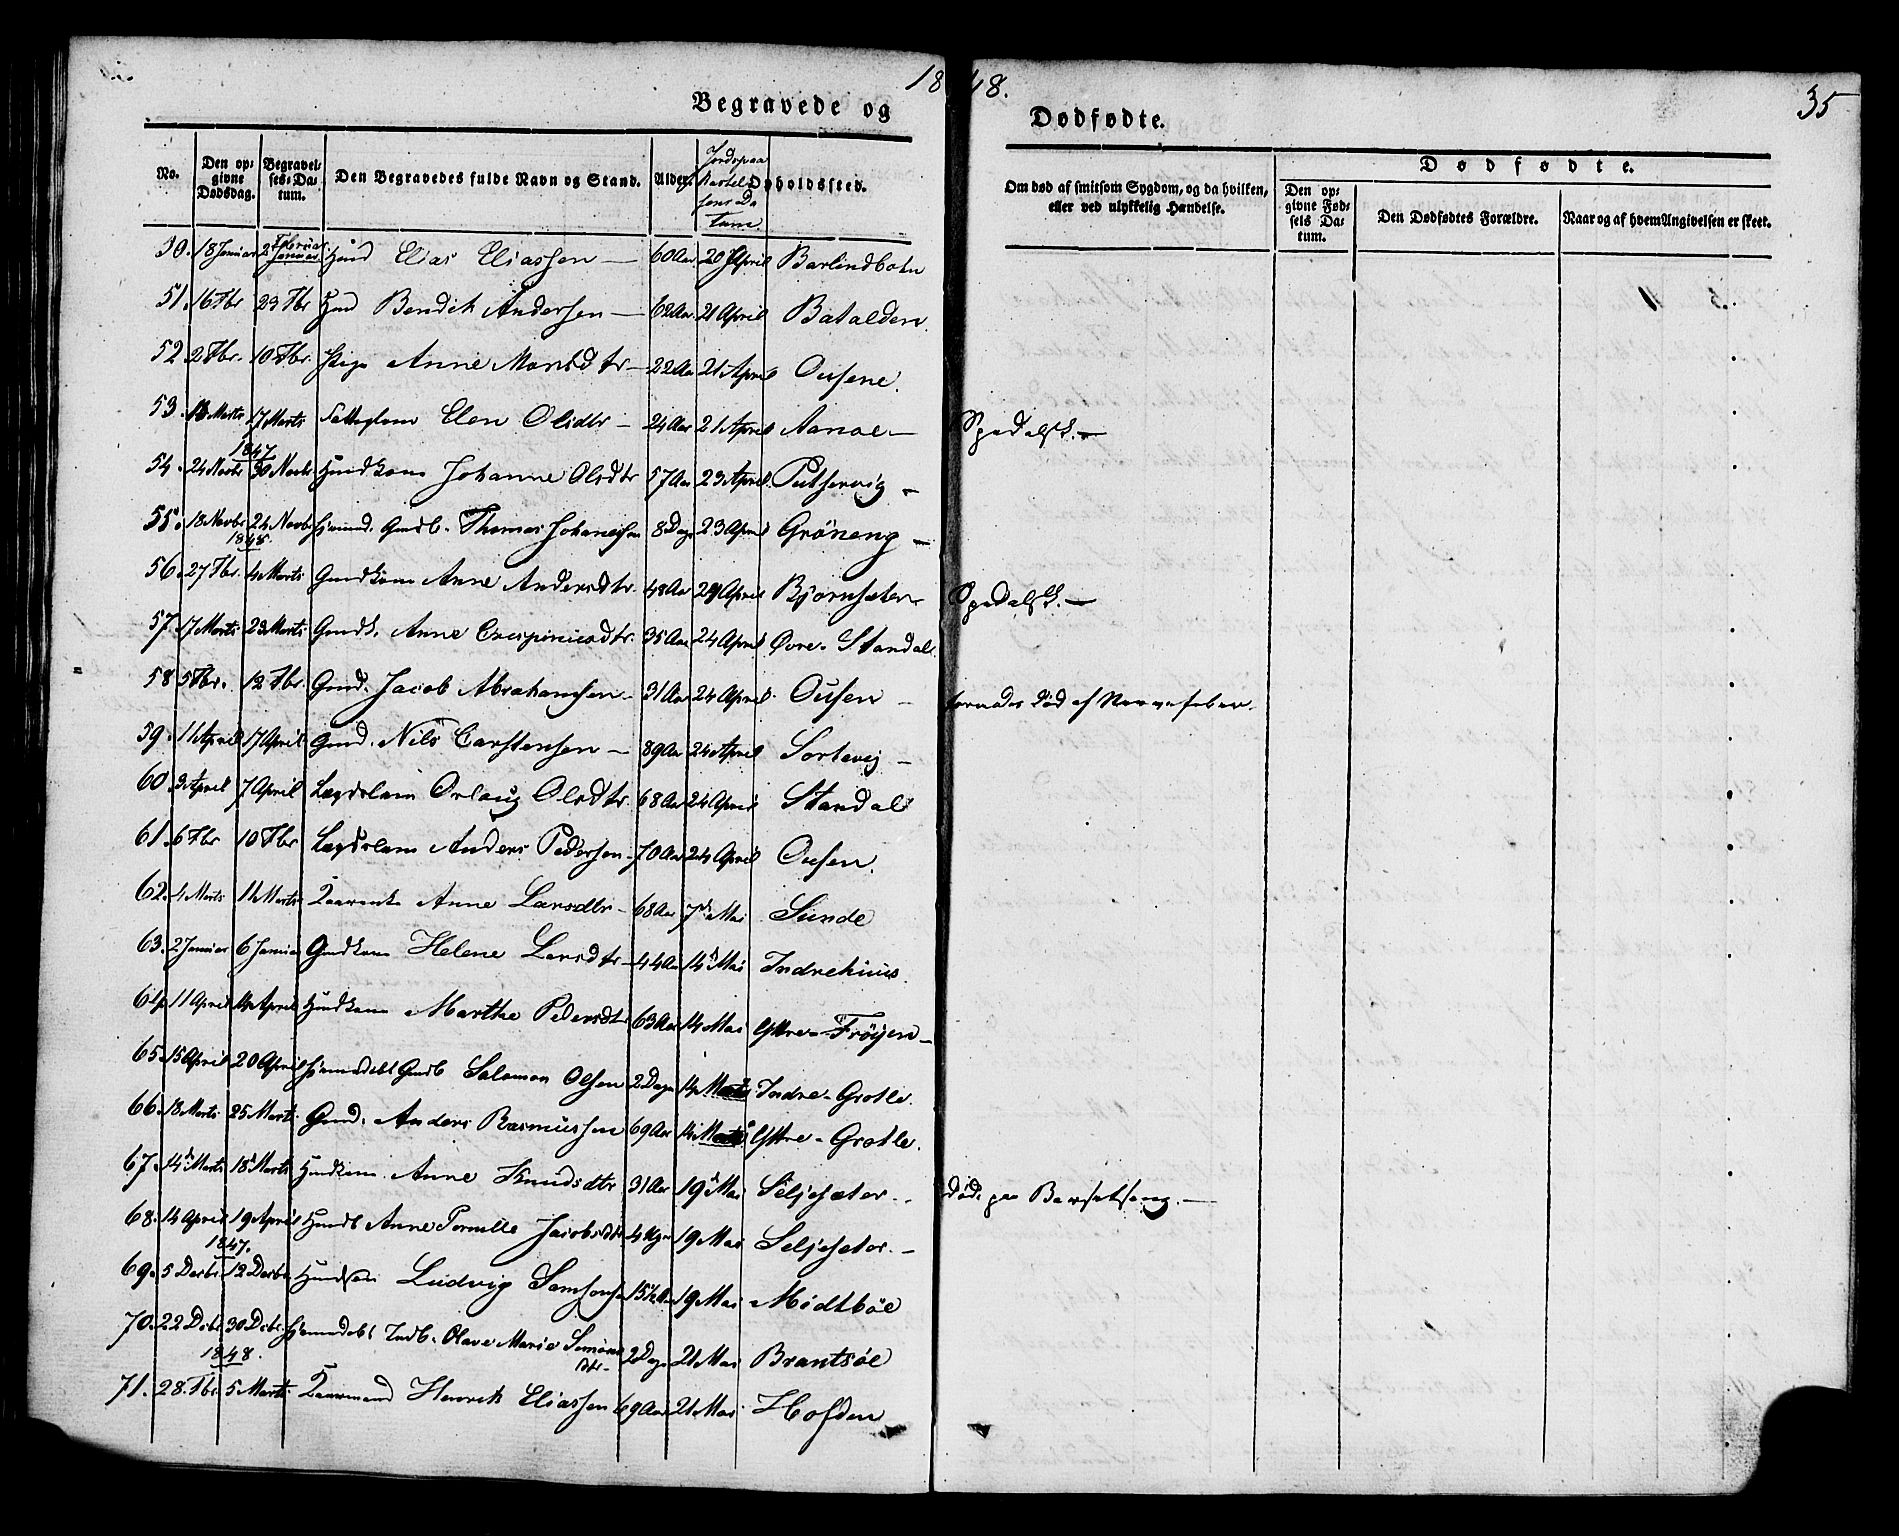 1848.
35
Begravede og
Dødfødte.
No. Den opgivne Dødsdag. Begravelses-Datum. Den Begravedes fulde Navn og Stand. Alder. Jordspaa Kastelsens Datum Opholdssted.
Om død af smitsom Sygdom, og da hvilken, eller ved ulykkelig Hændelse. Dødfødte. Den opgivne Fødsels Datum. Den Dødfødtes Forældre. Naar og af hvem Angivelsen er skeet.
50. 18 Januar 2 Februar Hmd Elias Eliassen — 60 Aar 20 April Barlindbotn
51. 16 Fbr 23 Fbr Hmd Bendik Andersen — 62 Aar 21 April Batalden.
52. 2 Fbr. 10 Fbr. Pige Anne Monsdtr — 22 Aar 21 April Ousene.
53. 13 Marts 17 Marts Elen Olsdtr — 24 Aar 21 April Aanoe — Spedalsk. —
1847
54. 24 Novbr 30 Novbr Hmdkone Johanne Olsdtr 57 Aar 23 April —
55. 18 Novbr 24 Novbr Gmdb. Thomas Johannessen 8 Dage 23 April Gröneng —
1848.
56. 27 Fbr. 4 Marts Gmdkone Anne Andersdtr. 48 Aar 24 April Bjørnsæter Spedalsk. —
57. 17 Marts 23 Marts Gmdk. Anne Crispinusdtr. 35 Aar 24 April Øvre-Standal.
58 5 Fbr. 12 Fbr. Gmd. Jacob Abrahamsen — 31 Aar 24 April Ousen — formodes død af Nervefeber.
59. 11 April 17 April Gmd. Nils Carstensen — 89 Aar 24 April Sortevig —
60. 3 April 7 April Lægdslem Orlaug Olsdtr. 68 Aar 24 April Standal
61. 6 Fbr 10 Fbr Lægdslem Anders Pedersen — 70 Aar 24 April Ousen.
62. 4 Marts 11 Marts Anne Larsdtr — 68 Aar 7d Mai Sunde
63. 2 Januar 6 Januar Gmdkone Helene Larsdtr — 44 Aar 14d Mai Indrehuus.
64. 11 April 14 April Hmdkone Marthe Pedersdtr 63 Aar 14 Mai Yttre-Frøyen —
65. 15 April 20 April Hjemmedøbt Gmdb Salomon Olsen 2 Dage 14 Mai Indre-Grotle.
66. 18 Marts 25 Marts Gmd. Anders Rasmussen 69 Aar 14 Mai Yttre-Grotle.
67. 14d Marts 18d Marts Hmdkone Anne Knudsdtr 31 Aar 19d Mai Seljesæter — Død paa Barselseng. —
68. 14 April 19 April Hmdb Anne Pernille Jacobsdtr 4 Uger 19 Mai Seljesæter. —
1847.
69. 5 Decbr 12 Decbr Hmdsøn Ludvig Samsonsen 15 1/2 Aar 19 Mai Midtbøe
70. 22 Dcbr. 30 Dcbr. Hjemmedøbt Indb. Olave Marie Simons Dtr — 2 Dage 21 Mai Brantsøe
1848.
71. 28. Fbr 5 Marts. Henrik Eliassen 69 Aar 21 Mai Hofden